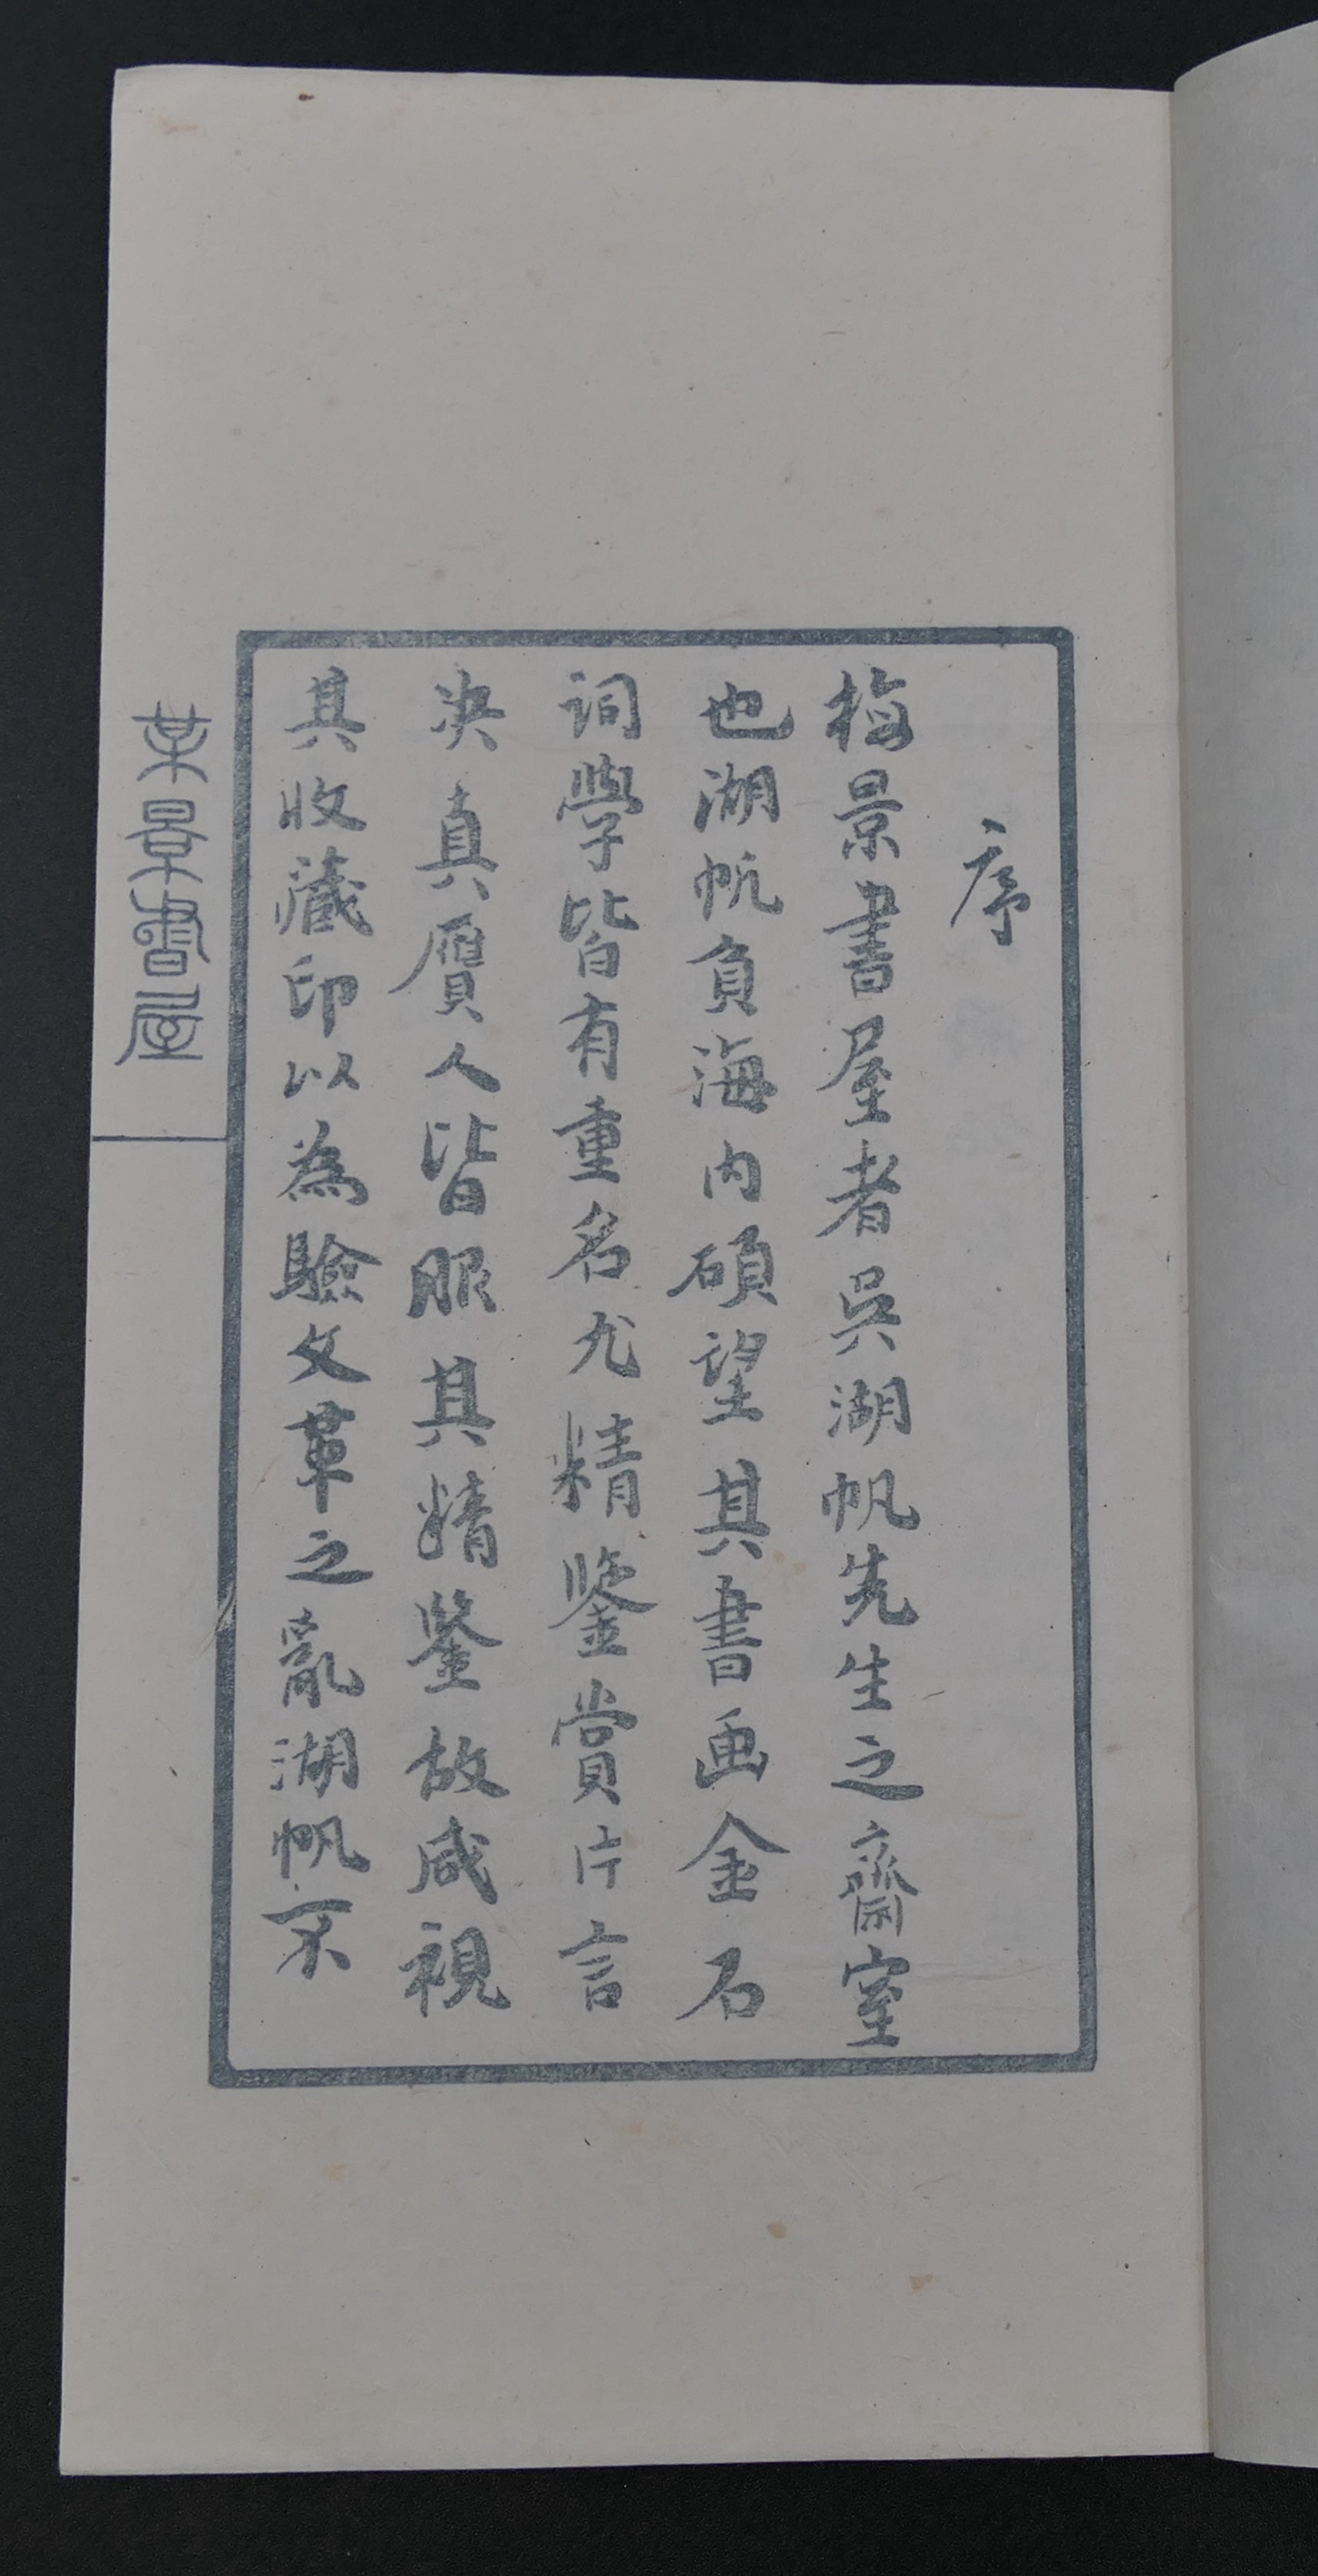 序
梅景書屋者吳湖帆先生之齋室
也湖帆負海内碩望其書画金石
詞學皆有重名尤精鑒賞片言
決真贋人皆服其精鑒故咸視
其收藏印以為驗文革之亂湖帆不
某景書屋